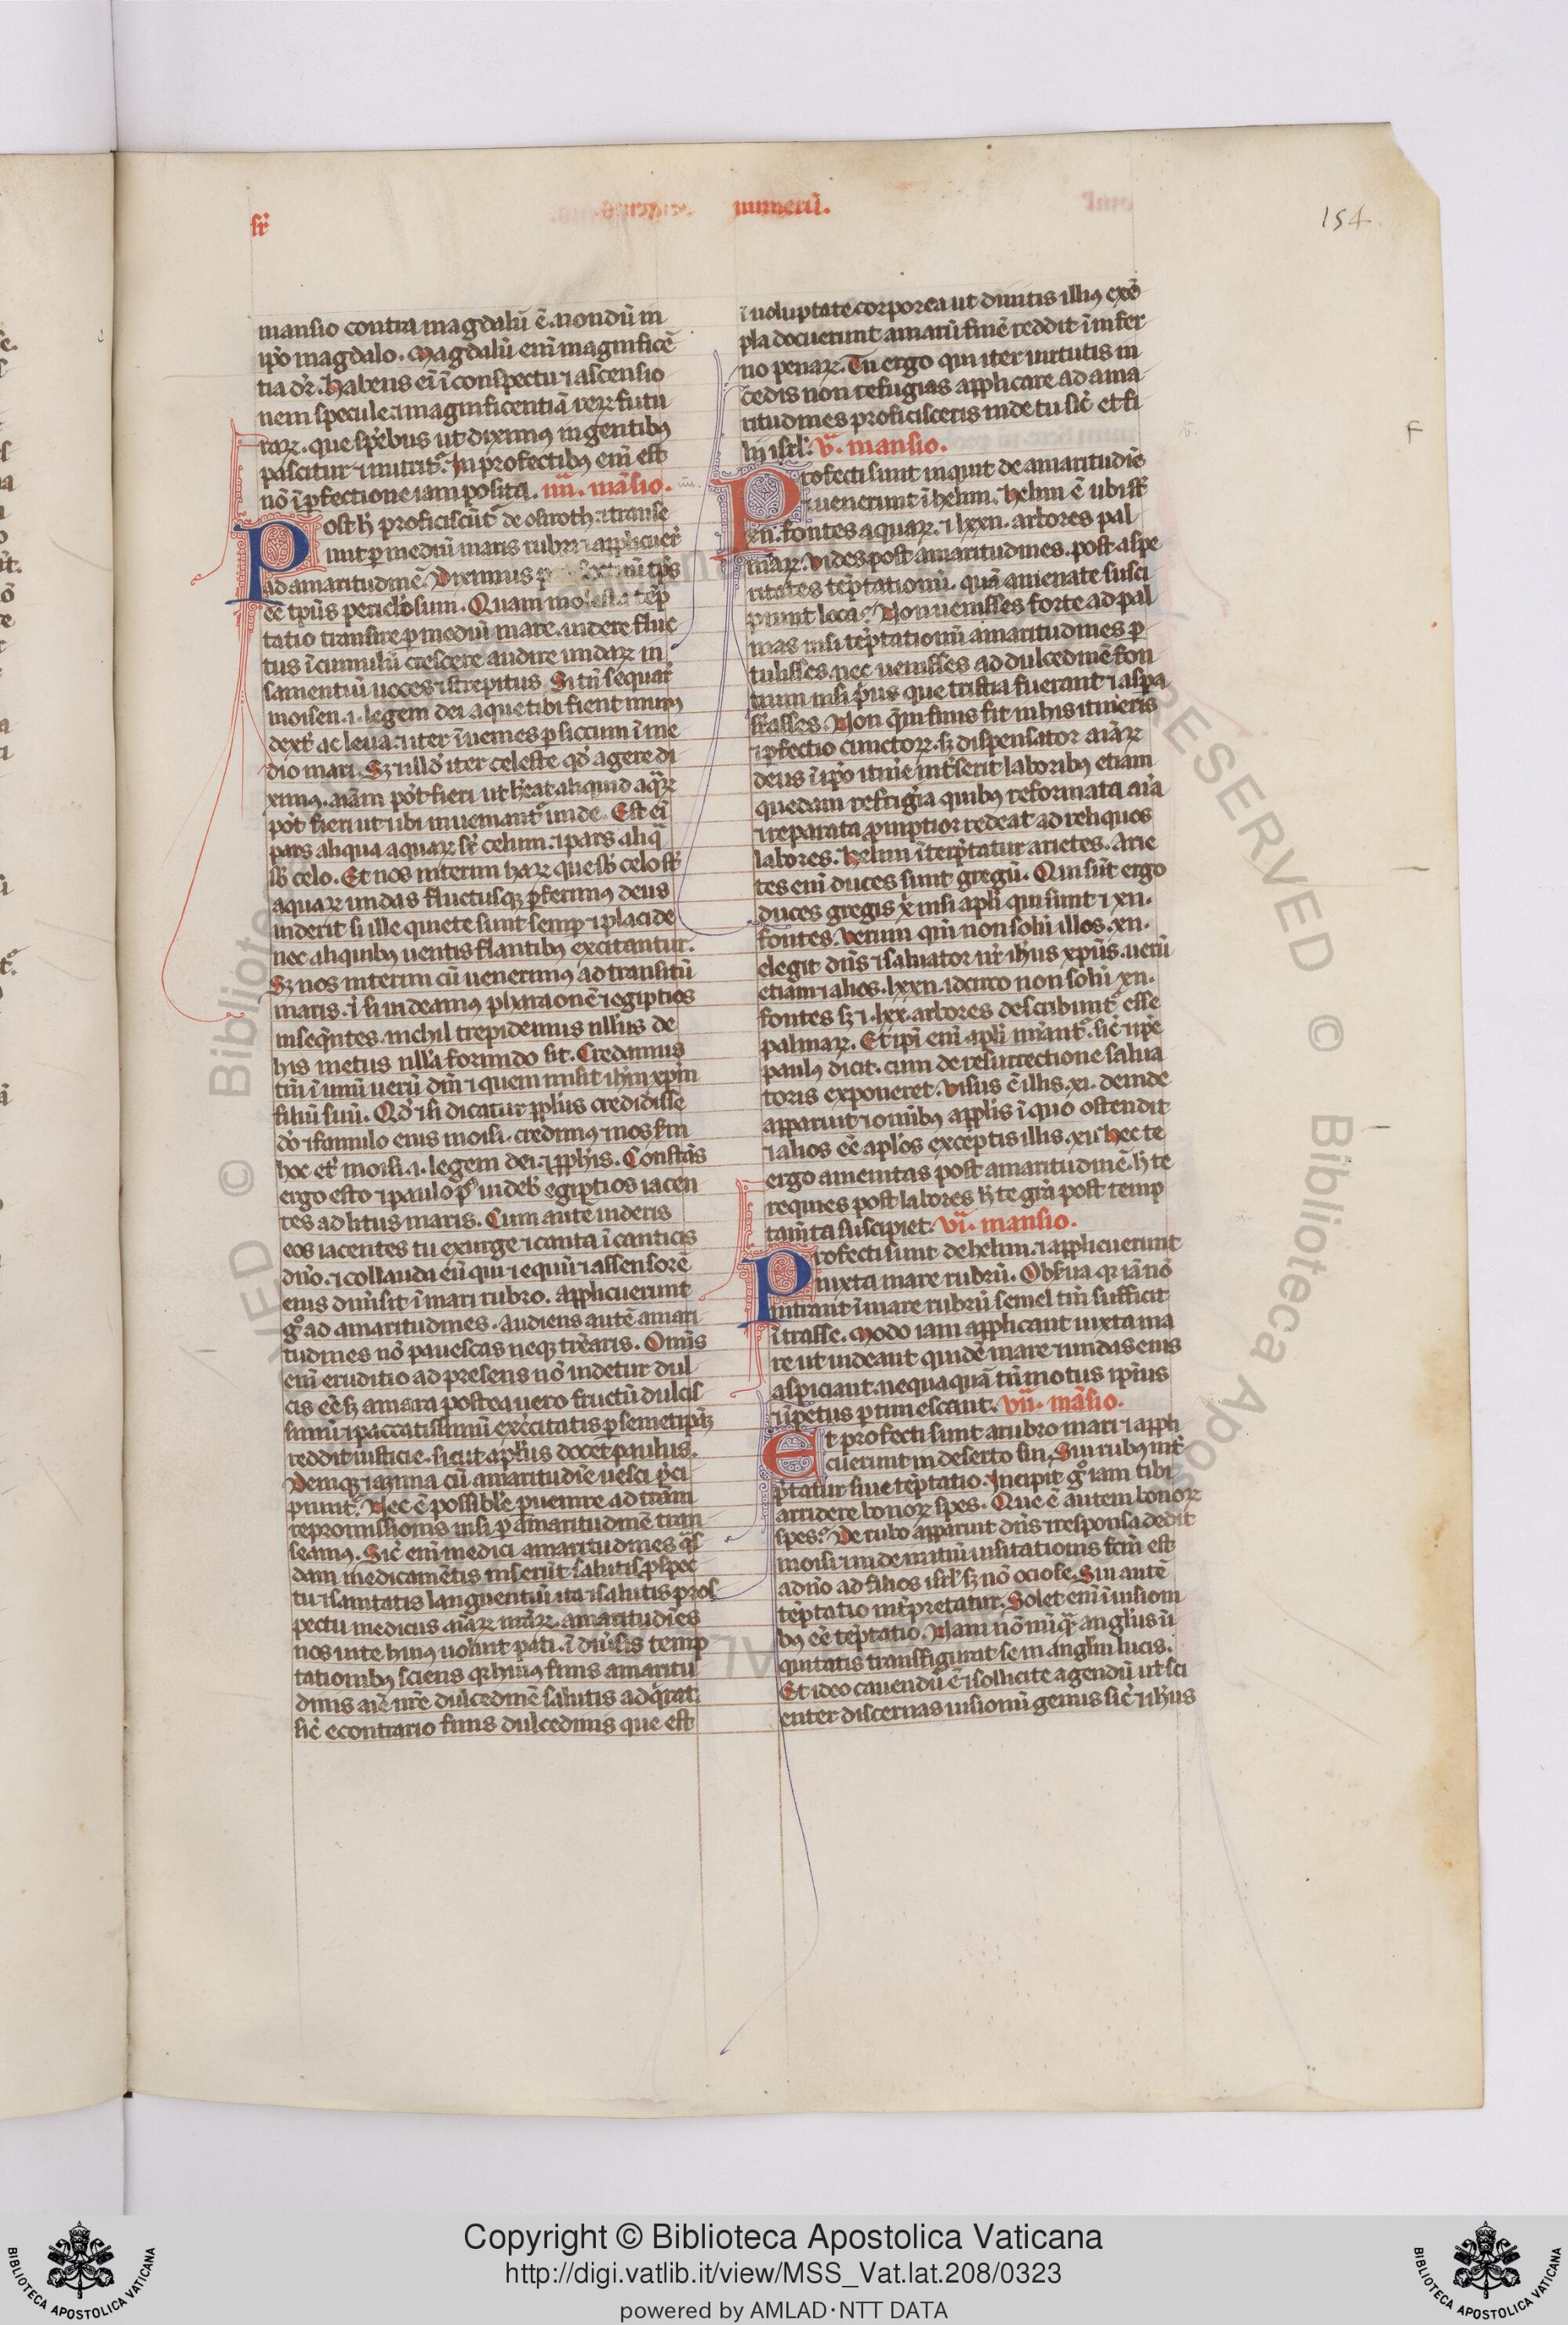 sr̄
numerū.
154
mansio contra magdalū ē. nondū in
ip̄o magdalo. Magdalū eni᷒ magnificē
tia dr̄. Habens ei᷒ ī conspectu ⁊ ascensio
nem specule ⁊ magnificentiā reꝝ futu
raꝝ. que spēbus ut dixim᷒ ingentib᷒
pascitur ⁊ nutrit᷒. In profectib᷒ eni᷒ est
nō ī ꝑfectione iam posita. iiii. māsio.
Post h̄ proficiscūt᷒ de osiroth. ⁊ transe
unt ꝑ mediū maris rubri ⁊ applicuer̄
ad amaritudinē. Diximus tp̄s
eē tp̄us periclosum. Quam molesta tēp
tatio transire ꝑ mediū mare. uidere fluc
tus ī cumulū crescere audire undaꝝ in
samentiū uoces ⁊ strepitus. Si tn̄ sequar̄
moisen .i. legem dei aque tibi fient muri
dext̄ ac leua. ⁊ iter īuenies ꝑ siccum ī me
dio mari. Sꝫ ⁊ illd̄ iter celeste qd̄ agere di
xim᷒. aīam pōt fieri ut hēat aliquid aq̄ꝝ
pōt fieri ut ibi inueniant᷒ unde. Est ei᷒
pars aliqua aquaꝝ sr̄ celum. ⁊ pars aliq̄
sb̄ celo. Et nos interim haꝝ que sb̄ celo st̄
aquaꝝ undas fluctusqꝫ ꝑferim᷒ deus
uiderit si ille quiete sunt semꝑ ⁊ placide
nec aliquib᷒ uentis flantib᷒ excitantur.
Sꝫ nos interim cū uenerim᷒ ad transitū
maris. ⁊ si uideam᷒ pharaonē ⁊ egiptios
inseq̄ntes. nichil trepidemus nllus de
his metus nlla formido sit. Credamus
tm̄ ī unū uerū dm̄ ⁊ quem misit ih̄m xp̄m
filiū suū. Qd̄ ⁊ si dicatur pp̄lus credidisse
dō ⁊ famulo eius moisi. credim᷒ ⁊ nos sm̄
hoc et᷒ moisi .i. legem dei. ⁊ pp̄his. Constās
ergo esto ⁊ paulo p᷒ uideb᷒ egiptios iacen
tes ad litus maris. Cum autē uideris
eos iacentes tu exurge ⁊ canta ī canticis
dn̄o. ⁊ collauda eū qui ⁊ equū ⁊ assensorē
eius dimsit ī mari rubro. applicuerunt
gͦ ad amaritudines. Audiens autē amari
tudines nō pauescas neqꝫ trearis. Omīs
eni᷒ eruditio ad presens nō uidetur dul
cis eē sꝫ amara postea uero fructū dulcis
simū ⁊ paccatissimū exercitatis ꝑ semetip̄aꝫ
reddit iusticie. sicut ap̄lus docet paulus.
Deniqꝫ ⁊ azima cū amaritudīe uesci p̄ci
piunt᷒. Nec ē possibile ꝑuenire ad trām
repromissionis nisi ꝑ amaritudinē tran
seam᷒. Sic᷒ eni᷒ medici amaritudines q̄s
dam medicamētis inserūt salutis ꝓspec
tu ⁊ sanitatis languentiū ita ⁊ salutis pros
pectu medicus aīaꝝ nr̄aꝝ. amaritudīes
nos uite hui᷒ uoluit pati. ī diuīsis temp
tationib᷒ sciens qꝛ hui᷒ finis amaritu
dinis aīe nr̄e dulcedinē salutis adq̄rat.
sic᷒ econtrario finis dulcedinis que est
ī uoluptate corporea ut diuitis illi᷒ exē
pla docuerunt amarū finē reddit ī infer
no penaꝝ. Tu ergo qui iter uirtutis in
cedis non refugias applicare ad ama
ritudines proficisceris inde tu sic᷒ et fi
lii isrl᷒. v᷒. mansio.
Profecti sunt inquit de amaritudīe
⁊ uenerunt ī helim. Helim ē ubi st̄
xii. fontes aquaꝝ. ⁊ lxxii. arbores pal
maꝝ. Vides post amaritudines. post aspe
ritates tēptationū. quā amenate susci
piunt loca? Non uenisses forte ad pal
mas nisi tēptationū amaritudines ꝑ
tulisses. nec uenisses ad dulcedinē fon
tium nisi p̄us que tristia fuerant ⁊ aspa
. Non q̄ finis sit in his itineris
⁊ ꝑfectio cunctoꝝ. sꝫ dispensator aīaꝝ
deus ī ip̄o itin̄e int̄serit laborib᷒ etiam
quedam refrigia quibus reformata aīa
⁊ reparata ꝓmptior redeat ad reliquos
labores. Helim īterp̄tatur arietes. Arie
tes eni᷒ duces sunt gregū. Qui sūt ergo
duces gregis x̄ nisi apl̄i qui sunt ⁊ xii.
fontes. Verum qm̄ non solū illos .xii.
elegit dn̄s ⁊ saluator nr̄ ih̄us xp̄us. uerū
etiam ⁊ alios. lxxii. idcirco non solū xii.
fontes sꝫ ⁊. lxx. arbores describunt᷒ esse
palmaꝝ. Et ip̄i eni᷒ apl̄i nm̄ant᷒. sic᷒ ip̄e
paul᷒ dicit. cum de resurrectione salua
toris exponeret. Visus ē illis. xi. deinde
apparuit ⁊ omīb᷒ apl̄is ī quo ostendit
⁊ alios eē apl̄os exceptis illis .xii. Hec te
ergo amenitas post amaritudinē. h̄ te
requies post labores h̄ te gr̄a post temp
tam̄ta suscipiet. vi᷒. mansio.
Profecti sunt de helim. ⁊ applicuerunt
iuxta mare rubrū. Obserua qꝛ iā nō
intrant ī mare rubrū semel tm̄ sufficit
ītrasse. Modo iam applicant iuxta ma
re ut uideant quidē mare ⁊ undas eius
aspiciant. nequaquā tn̄ motus ip̄ius
⁊ īpetus ꝑtimescant. vii᷒. māsio.
Et profecti sunt a rubro mari ⁊ appli
cuerunt in deserto sin. Sin rub᷒ int̄
p̄tatur siue tēptatio. Incipit gͦ iam tibi
arridere bonoꝝ spes. Que ē autem bonoꝝ
spes? De rubo apparuit dn̄s ⁊ responsa dedit
moisi ⁊ inde initiū uisitationis fcm̄ est
a dn̄o ad filios isrl᷒ sꝫ nō ociose. Sin autē
tēptatio int̄pretatur. Solet eni᷒ ī uisioni
b᷒ eē tēptatio. Nam nō nūq̄ anglus ī
quitatis transfigurat se in anglm lucis.
Et ideo cauendū ē ⁊ sollicite agendū ut sci
enter discernas uisionū genus sic᷒ ⁊ ih̄us
F
Copyright © Biblioteca Apostolica Vaticana
http://digi.vatlib.it/view/MSS_Vat.lat.208/0323
powered by AMLAD·NTT DATA
BIBLIOTECA APOSTOLICA VATICANA
BIBLIOTECA APOSTOLICA VATICANA